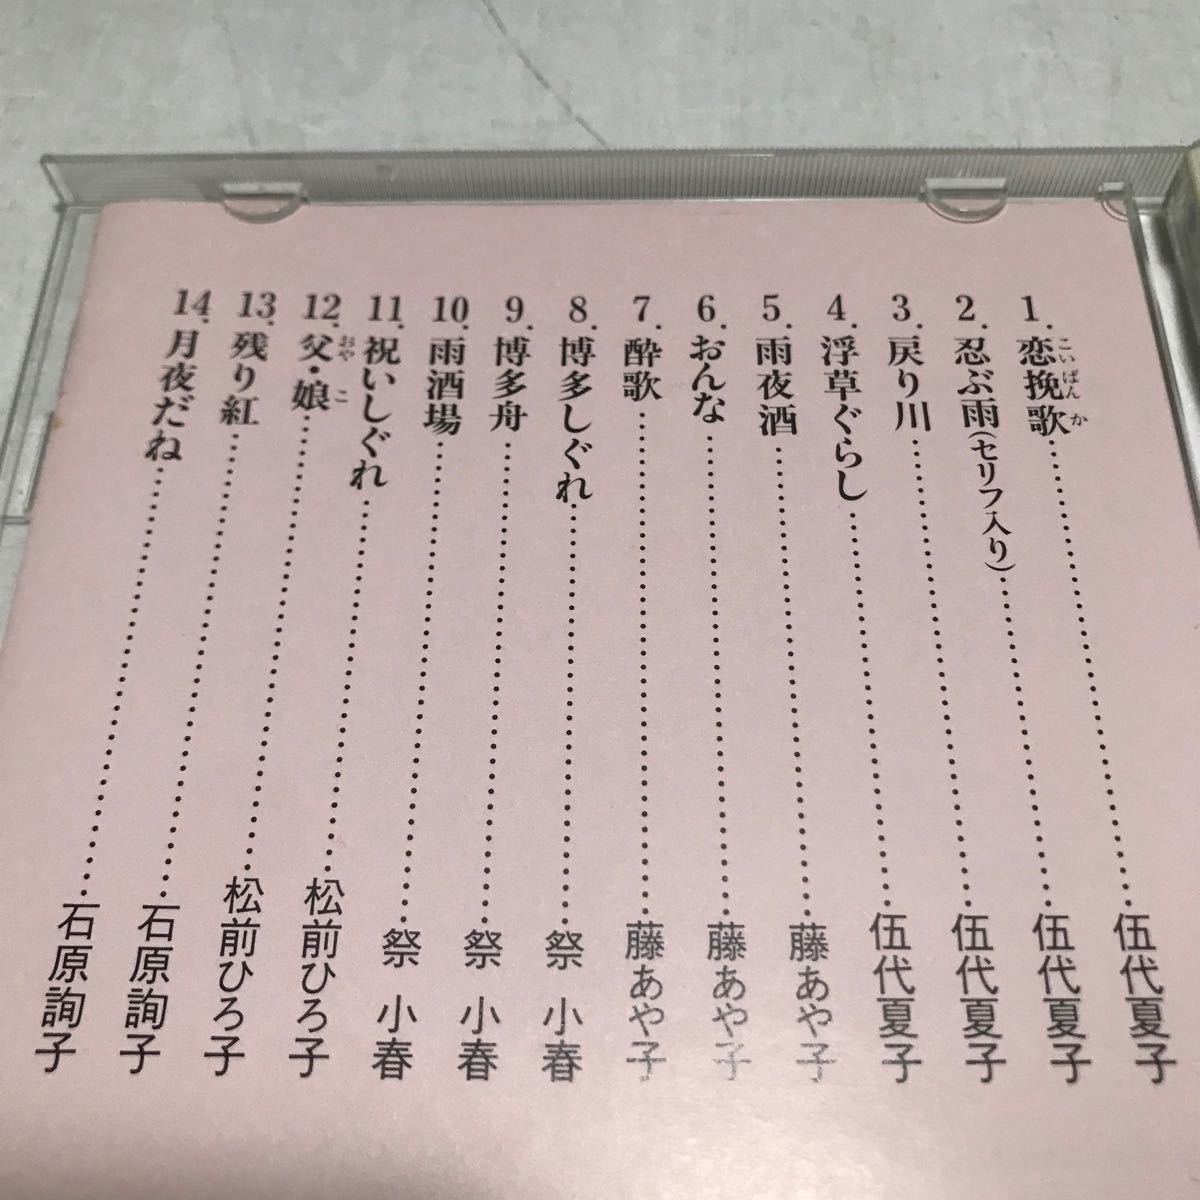 1.恋挽歌……伍代夏子
こいばんか
2.忍ぶ雨(セリフ入り)……伍代夏子
3.戻り川……伍代夏子
4.浮草ぐらし……伍代夏子
5.雨夜酒……藤あや子
6.おんな……藤あや子
7.酔歌……藤あや子
8.博多しぐれ……祭 小春
9.博多舟……祭 小春
10.雨酒場……祭 小春
11.祝いしぐれ……松前ひろ子
12.父・娘……松前ひろ子
おやこ
13.残り紅……石原詢子
14.月夜だね……石原詢子